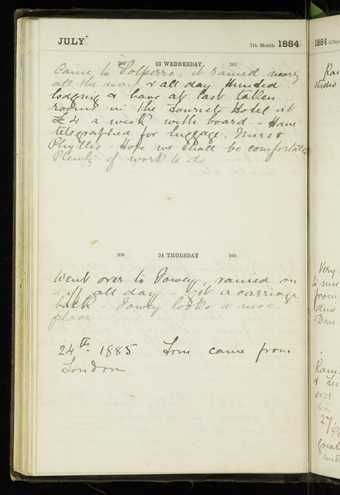 JULY
7th Month 1884
23 WEDNESDAY
Came to Polperro, it rained nearly
all the way & all day Hunted
lodgings & have at last taken
rooms in the Tourists Hotel at
£4 a week with board - Have
telegraphed for luggage, Nurse &
Phyllis - Hope we shall be comfortable
Plenty of work to do
24 THURSDAY
Went over to Fowey, rained on
& off all day - got a carriage
back - Fowey looks a nice
place
24th 1885 Tom came from
London
1884